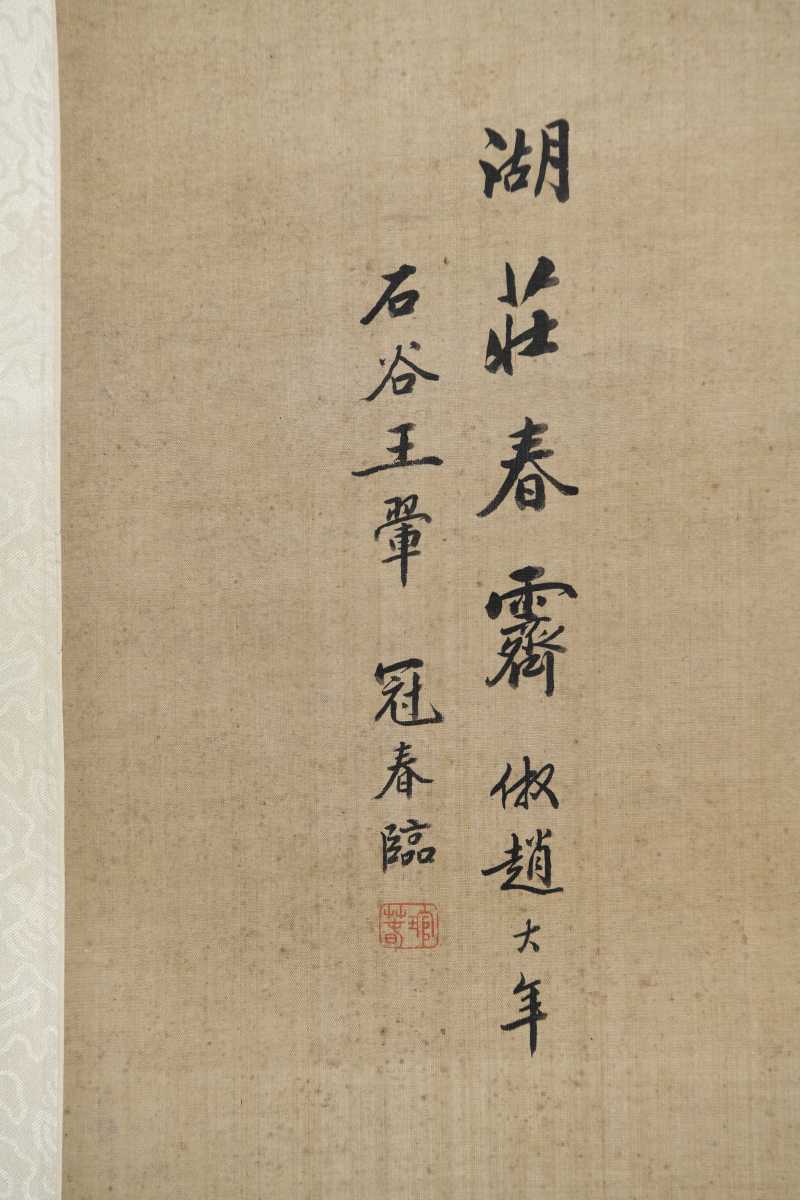 湖莊春霽 倣趙大年
石谷王翬 冠春臨